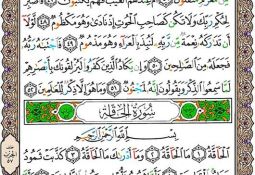 لِحُكْمِ رَبِّكَ وَلَا تَكُن كَصَاحِبِ الْحُوتِ إِذْ نَادَىٰ وَهُوَ مَكْظُومٌ ٤٨ لَّوْلَا
أَن تَدَارَكَهُ نِعْمَةٌ مِّن رَّبِّهِ لَنُبِذَ بِالْعَرَاءِ وَهُوَ مَذْمُومٌ ٤٩ فَاجْتَبَاهُ رَبُّهُ
فَجَعَلَهُ مِنَ الصَّالِحِينَ ٥٠ وَإِن يَكَادُ الَّذِينَ كَفَرُوا لَيُزْلِقُونَكَ بِأَبْصَارِهِمْ
لَمَّا سَمِعُوا الذِّكْرَ وَيَقُولُونَ إِنَّهُ لَمَجْنُونٌ ٥١ وَمَا هُوَ إِلَّا ذِكْرٌ لِّلْعَالَمِينَ ٥٢
سُورَةُ الْحَاقَّةِ
بِسْمِ اللَّهِ الرَّحْمَٰنِ الرَّحِيمِ
الْحَاقَّةُ ١ مَا الْحَاقَّةُ ٢ وَمَا أَدْرَاكَ مَا الْحَاقَّةُ ٣ كَذَّبَتْ ثَمُودُ